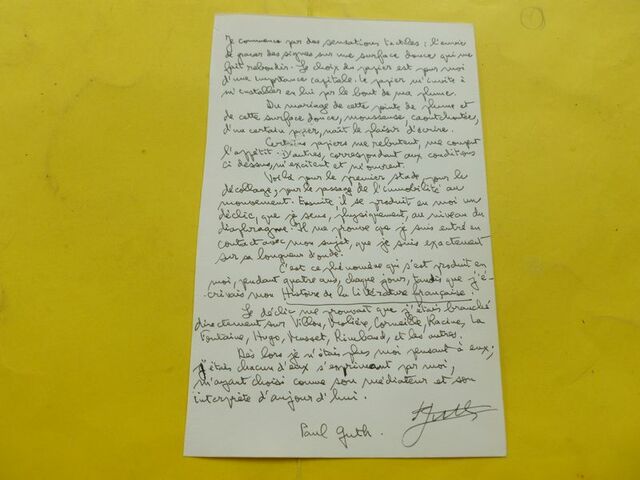 Je commence par des sensations tactiles : l'envie
de tracer des signes sur une surface douce qui me
fait rebondir. Le choix du papier est pour moi
d'une importance capitale. Le papier m'invite à
m'installer en lui par le bout de ma plume.
Du mariage de cette pointe de plume et
de cette surface douce, mousseuse, caoutchoutée,
d'un certain papier, naît le plaisir d'écrire.
Certains papiers me rebutent, me coupent
l'appétit. D'autres, correspondant aux conditions
ci dessus, m'excitent et m'ouvrent.
Voilà pour le premier stade, pour le
décollage, pour le passage de l'immobilité au
mouvement. Ensuite il se produit en moi un
déclic, que je sens, physiquement, au niveau du
diaphragme. Il me prouve que je suis entré en
contact avec mon sujet, que je suis exactement
sur sa longueur d'onde.
C'est ce phénomène qui s'est produit en
moi, pendant quatre ans, chaque jour, tandis que j'é-
crivais mon Histoire de la littérature française.
Le déclic me prouvait que j'étais branché
directement sur Villon, Molière, Corneille, Racine, La
Fontaine, Hugo, Musset, Rimbaud, et les autres.
Dès lors je n'étais plus moi pensant à eux ;
j'étais chacun d'eux s'exprimant par moi,
m'ayant choisi comme son médiateur et son
interprète d'aujourd'hui.
Paul Guth.